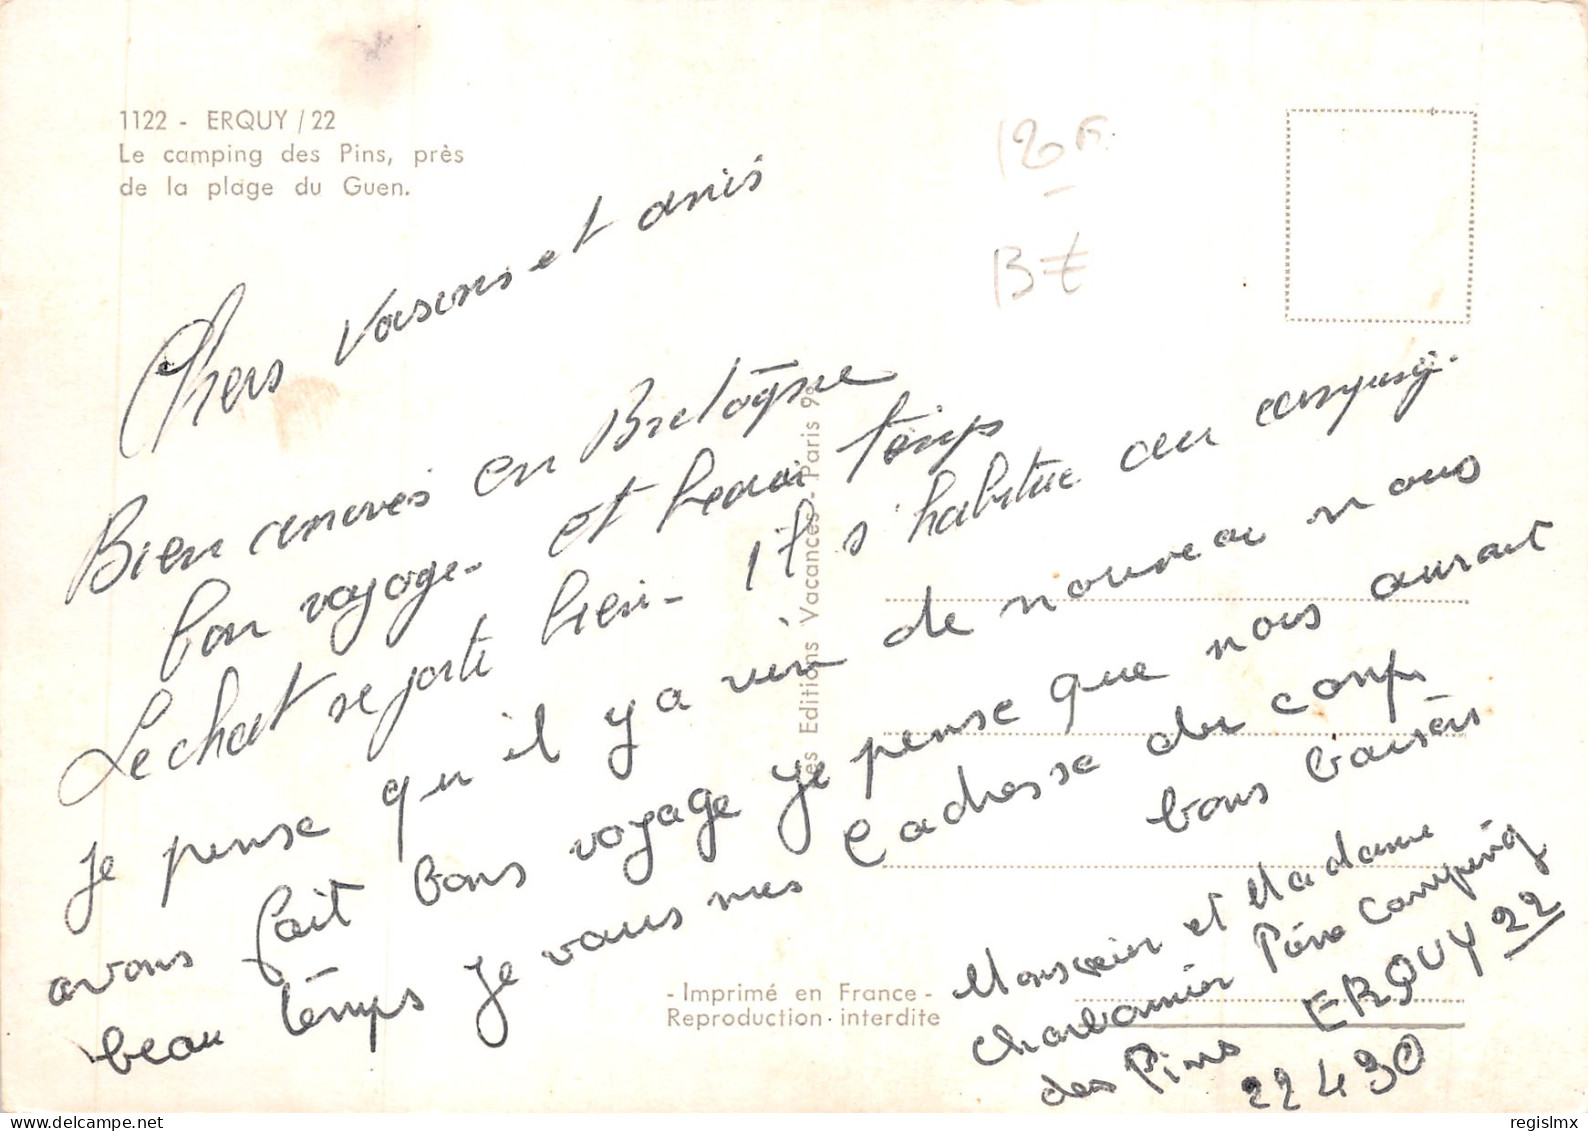 1122 - ERQUY / 22
Le camping des Pins, près
de la plage du Guen.
12 F.
B
Chers voisins et amis
Bien arrivés en Bretogne
bon voyage - et beau temps
Le chat se porte bien - il s'habitue au camping.
Je pense qu'il y a rien de nouveau nous
avons fait bons voyage je pense que nous aurait
beau temps je vous mes l'adresse du camp
bons baisers
Monsieur et Madame
Charbonnier Père Camping
des Pins ERQUY 22
22430
Les Editions Vacances - Paris 9e
- Imprimé en France -
Reproduction interdite
regislmx